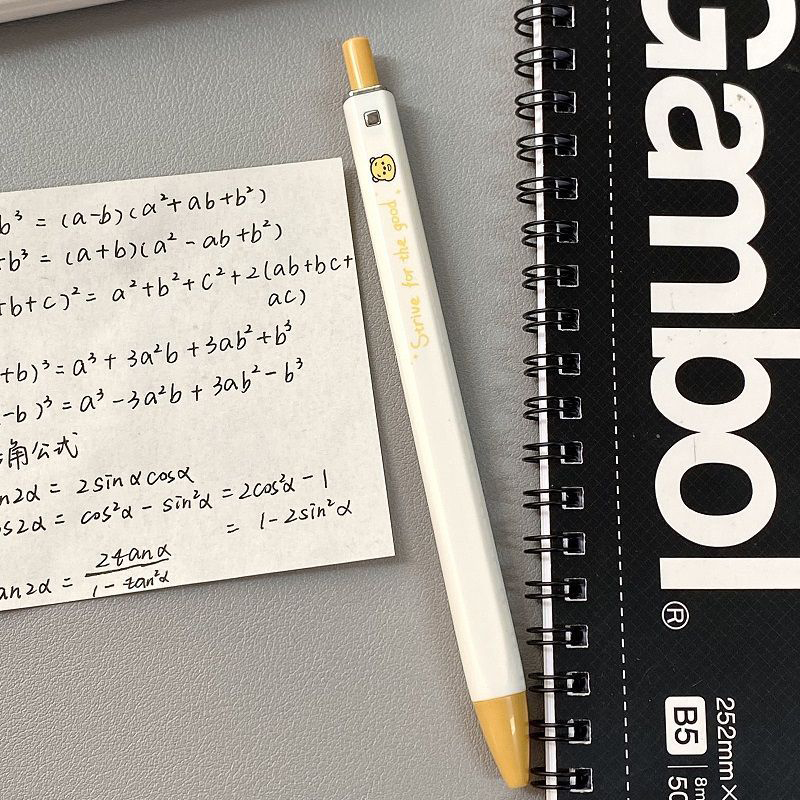 b³ = (a-b)(a²+ab+b²)
+b³ = (a+b)(a² - ab+b²)
+b+c)² = a²+b²+c²+2(ab+bc+
ac)
+b)³ = a³ + 3a²b + 3ab² + b³
-b)³ = a³ - 3a²b + 3ab² - b³
角公式
n2α = 2sinαcosα
os2α = cos²α - sin²α = 2cos²α - 1
= 1-2sin²α
an2α = 2tanα / 1-tan²α
Strive for the good.
Gambol®
B5
252mm ×
8m
50